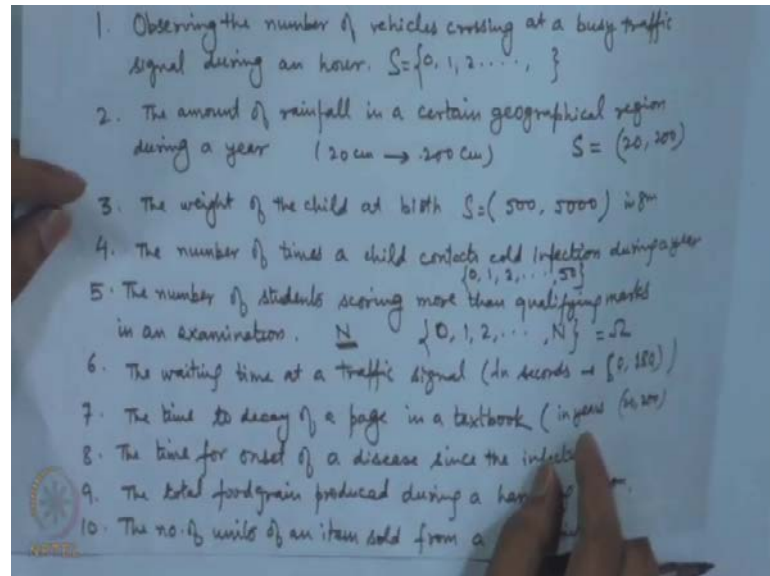 1. Observing the number of vehicles crossing at a busy traffic
signal during an hour. S={0, 1, 2....., }
2. The amount of rainfall in a certain geographical region
during a year (20 cm → 200 cm) S = (20, 200)
3. The weight of the child at birth S=(500, 5000) in gm
4. The number of times a child contacts cold infection during a year
{0, 1, 2, ..., 50}
5. The number of students scoring more than qualifying marks
in an examination. N {0, 1, 2, ..., N} = Ω
6. The waiting time at a traffic signal (In seconds → [0, 180))
7. The time to decay of a page in a textbook (in years
8. The time for onset of a disease since the
9. The total foodgrain produced during a
10. The no. of units of an item sold from a
NPTEL